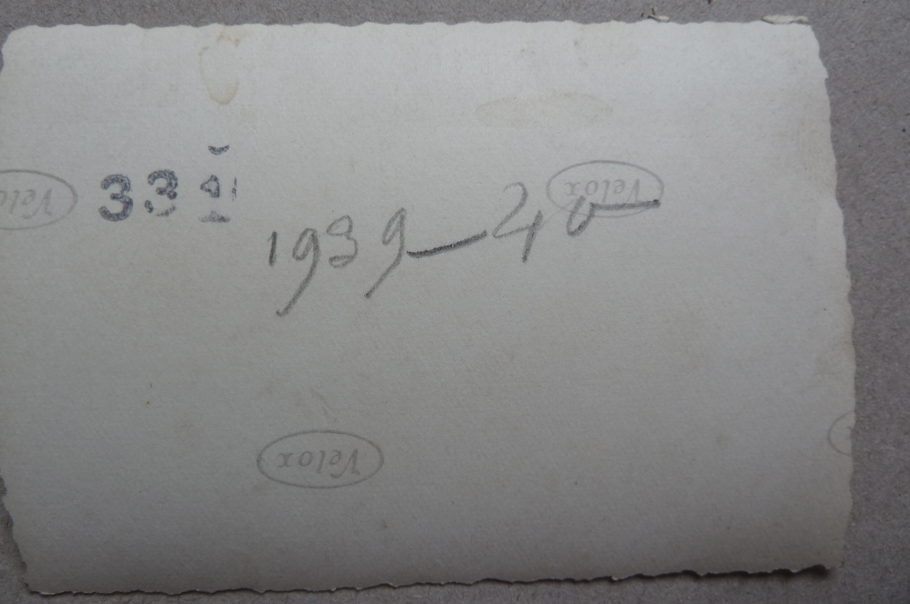 Velox
Velox
33
1939-40
Velox